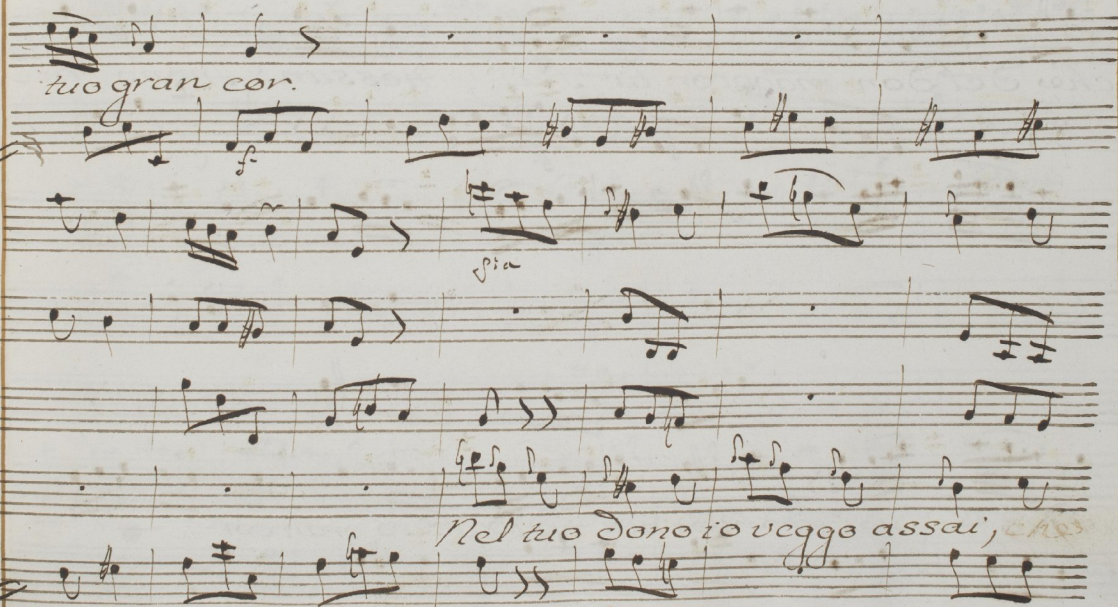 tuo gran cor.
f
pia
Nel tuo dono io veggo assai, che